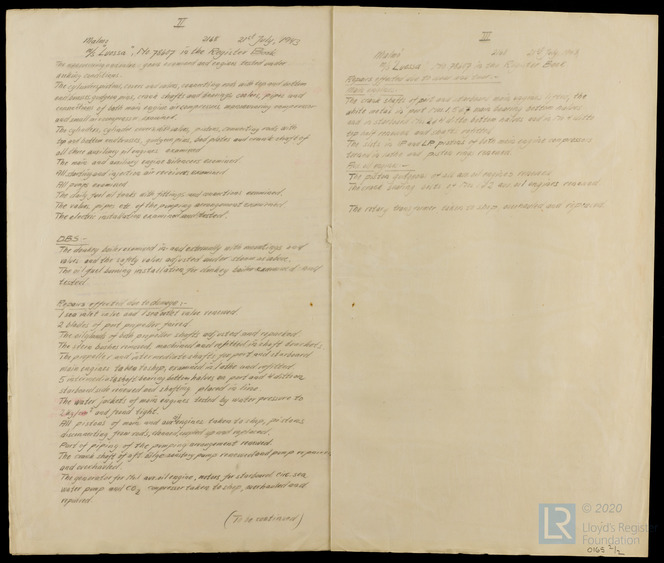 II
Malmö 2168 21st July, 1943
M/S "Luossa", No 78607 in the Register Book
The manoeuvring examined and engines tested under
working conditions.
The cylinders, pistons, covers and valves, connecting rods with top and bottom
end brasses, gudgeon pins, crank shafts and bearings valves, pipes and
of both main engine air compressors, manoeuvring compressor
and small air compressor examined.
The cylinders, cylinder covers with valves, pistons, connecting rods with
top and bottom end brasses, gudgeon pins, bed plates and crank shafts of
all three auxiliary oil engines examined
The main and auxiliary engine silencers examined
All starting and injection air receivers examined
All pumps examined
The daily fuel oil tanks with fittings and mountings examined.
The valves, pipes etc. of the pumping arrangement examined
The electric installation examined and tested.
DBS:-
The donkey boiler examined in- and externally with mountings and
valves and the safety valves adjusted under steam as above.
The oil fuel burning installation for donkey boiler examined and
tested
Repairs effected due to damage:-
1 sea inlet valve and 1 sea outlet valve renewed
2 blades of port propeller faired
The oil glands of both propeller shafts adjusted and repacked.
The stern bushes renewed, machined and refitted to shaft
The propeller and intermediate shafts for port and starboard
main engines taken to shop, examined in lathe and refitted
5 intermediate shaft bearing bottom halves on port and 4 ditto on
starboard side renewed and shafting placed in line.
The water jackets of main engines tested by water pressure to
2 kg/cm² and found tight.
All pistons of main and aux engines taken to shop, pistons
disconnecting from rods, cleaned, coupled up and replaced.
Part of piping of the pumping arrangement renewed
The crank shaft of aft bilge sanitary pump renewed and pump repaired
and overhauled.
The generator for No 1 aux. oil engine, motors for starboard circ. sea
water pump and CO2 compressor taken to shop, overhauled and
repaired
(To be continued)
III
Malmö 2168 21st July 1943
M/S "Luossa" No 78607 in the Register Book
Repairs effected due to wear and tear:-
Main engines:-
The crank shafts of port and starboard main engines the
white metal in port No 1 5 & 7 main bearing bottom halves
and in starboard No 4 & the bottom halves and in No 4 with
top half renewed and shafts refitted
The in HP and LP pistons of both main engine compressors
turned in lathe and piston rings renewed.
Aux. oil engines:-
The piston gudgeon of all aux oil engines renewed
The crank bushing of No 1 & 3 aux. oil engines renewed
The rotary transformer taken to shop, overhauled and repaired.
© 2020
LR
Lloyd's Register
Foundation
0165 2/2